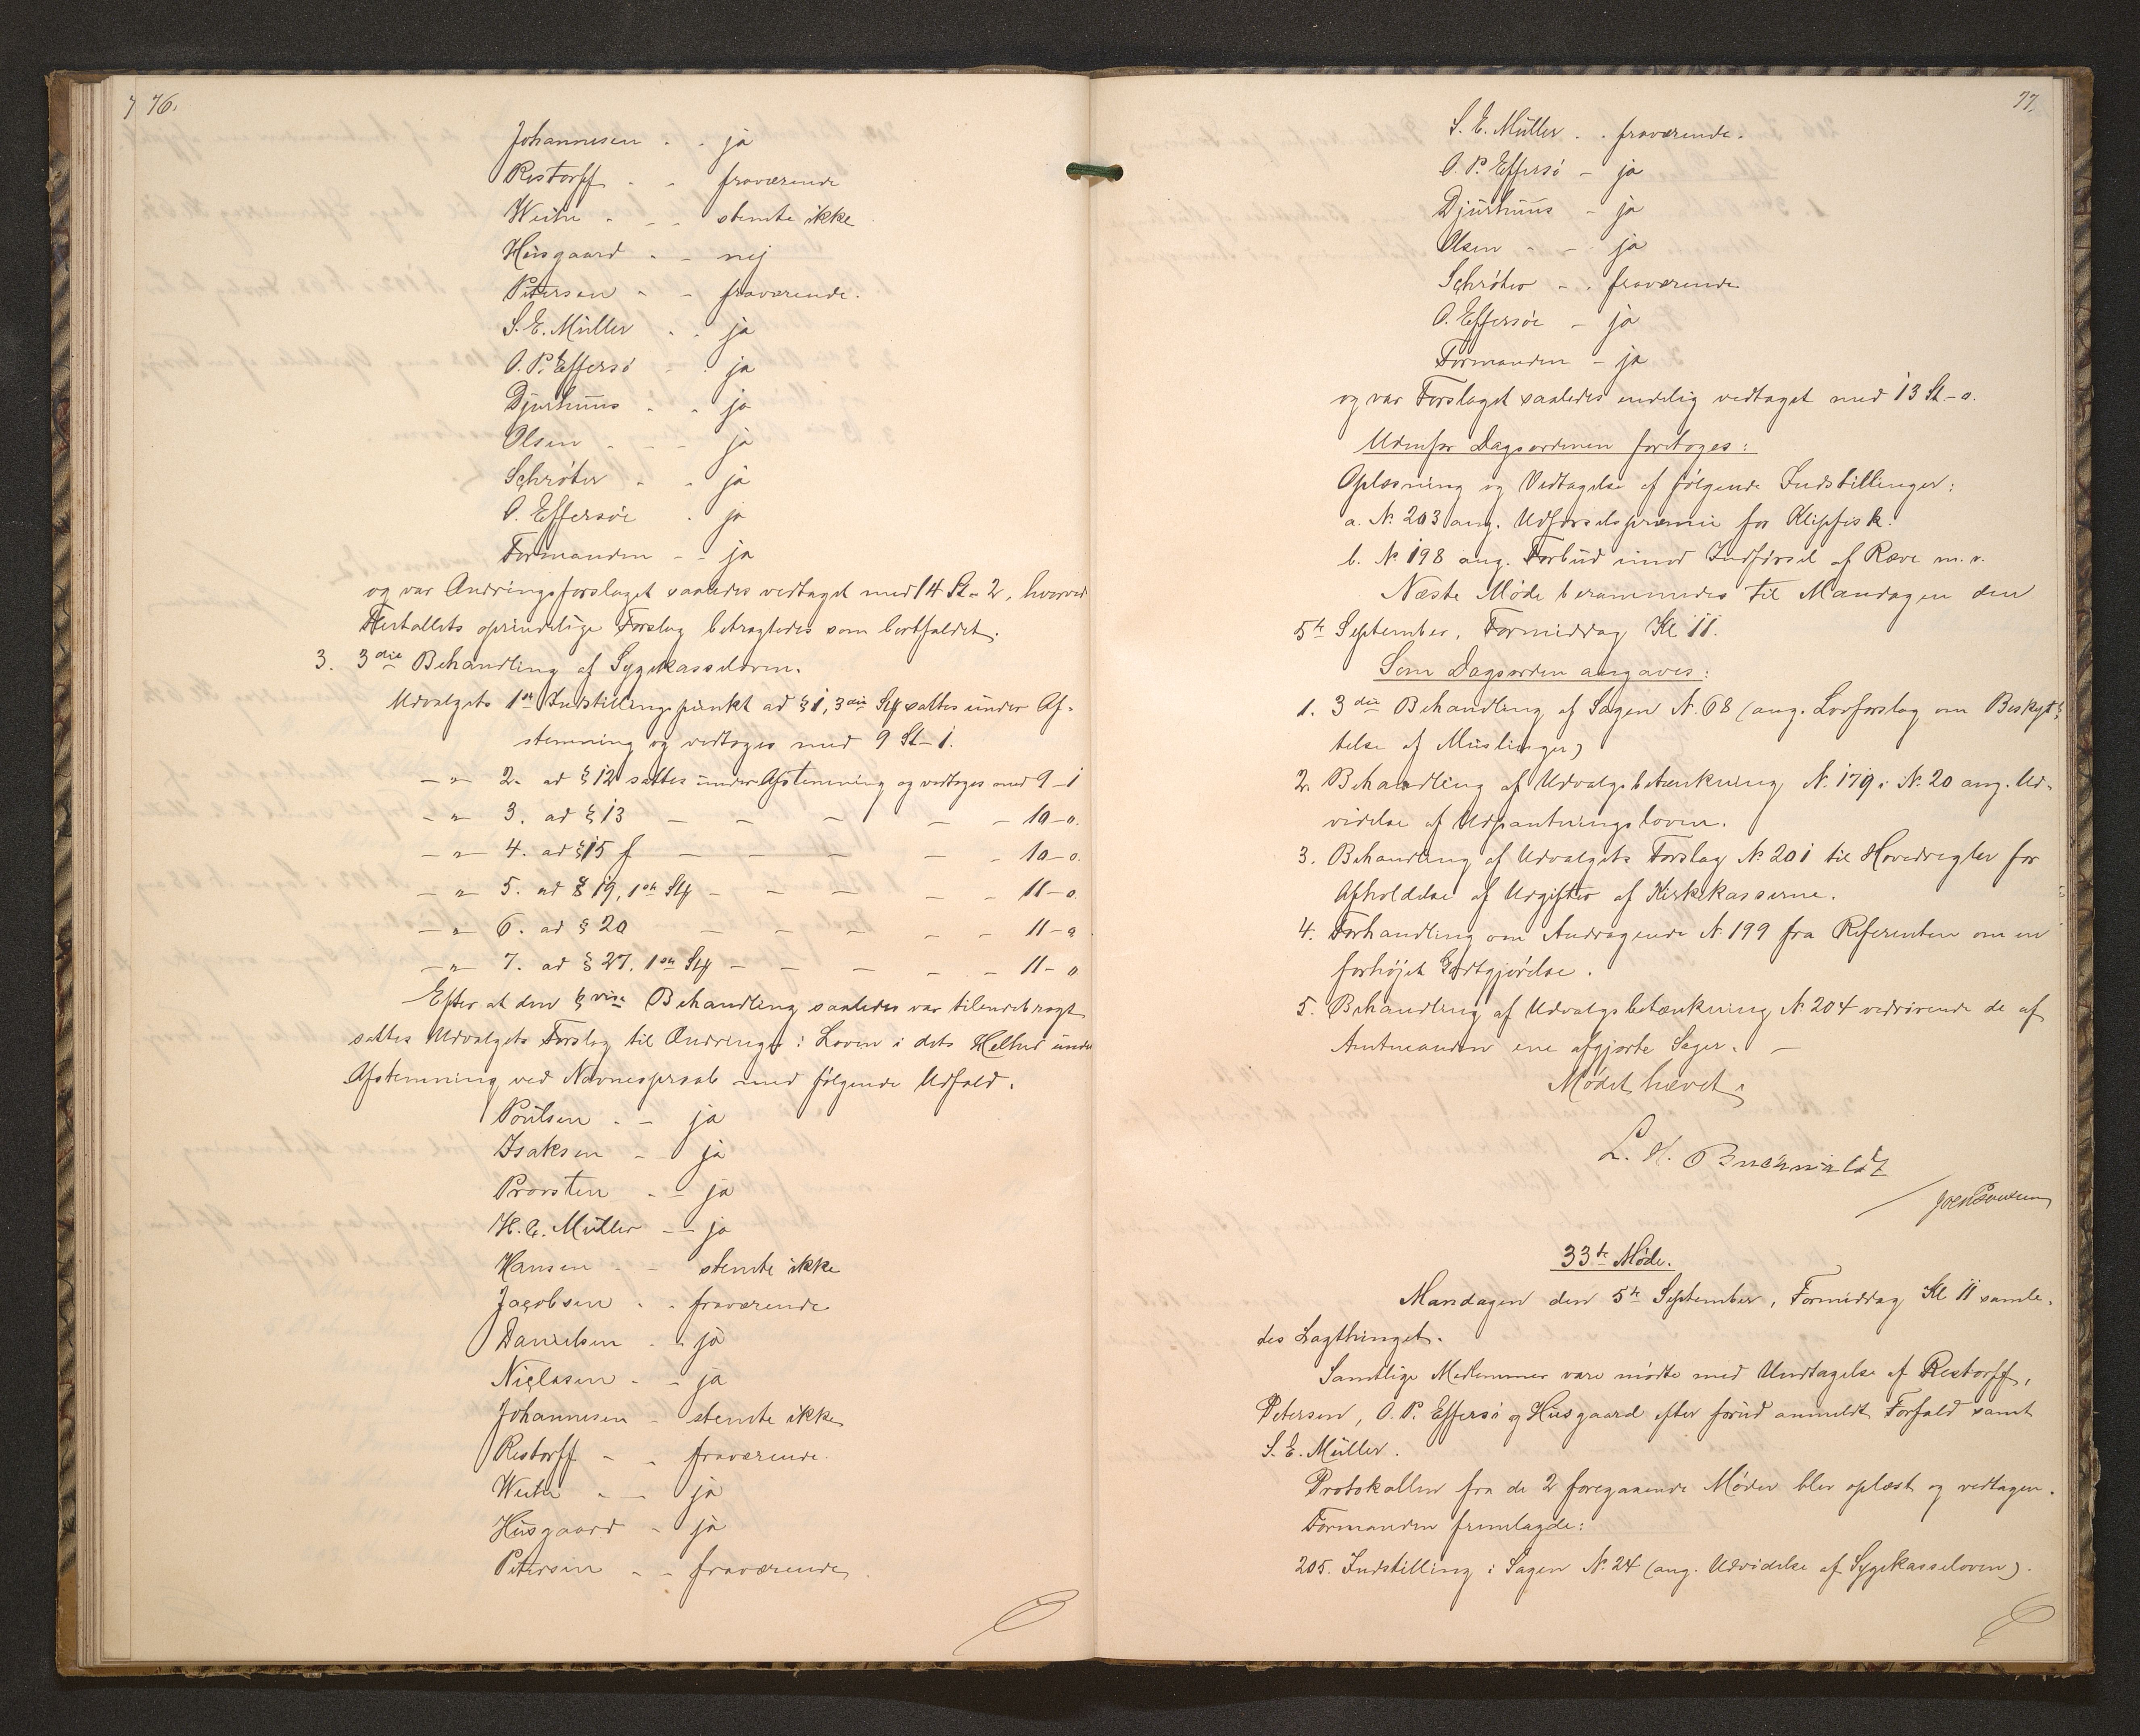 76.
Johannesen - - ja
Restorff - - fraværende
Weihe - - - stemte ikke
Husgaard - - nej
Petersen - - fraværende.
S. E. Müller - - ja
O. P. Effersö - - ja
Djurhuus - - ja
Olsen - - - ja
Schröter - - ja
O. Effersöe - ja
Formanden - - ja
og var Ændringsforslaget saaledes vedtaget med 14 St - 2, hvorved
Flertallets oprindelige Forslag betragtedes som bortfaldet.
3. 3die Behandling af Sygekasseloven.
Udvalgets 1ste Indstillingspunkt ad § 1, 3die Stk sattes under Af-
stemning og vedtoges med 9 St - 1.
— " — 2. ad § 12 sattes under Afstemning og vedtoges med 9 - 1
— " — 3. ad § 13 — — — — — 10 - 0.
— " — 4. ad § 15 f — — — — — 10 - 0.
— " — 5. ad § 19, 1ste Stk — — — — — 11 - 0
— " — 6. ad § 20 — — — — — 11 - 0
— " — 7. ad § 27, 1ste Stk — — — — — 11 - 0
Efter at den § vise Behandling saaledes var tilendebragt
sattes Udvalgets Forslag til Ændringer i Loven i dets Helhed under
Afstemning ved Navneopraab med følgende Udfald.
Poulsen - - ja
Isaksen - - ja
Provsten - - ja
H. C. Müller - - ja
Hansen - - stemte ikke
Jacobsen - - fraværende
Danielsen - - ja
Niclasen - - ja
Johannesen - stemte ikke
Restorff - - fraværende.
Weihe - - ja
Husgaard - ja
Petersen - - fraværende.
77.
S. E. Müller - - fraværende.
O. P. Effersö - ja
Djurhuus - ja
Olsen - - ja
Schröter - - fraværende
O. Effersöe - ja
Formanden - ja
og var Forslaget saaledes endelig vedtaget med 13 St - 0.
Udenfor Dagsordenen foretoges:
Oplæsning og Vedtagelse af følgende Indstillinger:
a. No 203 ang. Udførselspræmie for Klipfisk.
b. No 198 ang. Forbud imod Indførsel af Ræve m. v.
Næste Møde berammedes til Mandagen den
5te September, Formiddag Kl 11.
Som Dagsorden angaves:
1. 3die Behandling af Sagen No 68 (ang. Lovforslag om Beskyt-
telse af Muslinger)
2. Behandling af Udvalgsbetænkning No 179 i No 20 ang. Ud-
videlse af Udpantningsloven.
3. Behandling af Udvalgets Forslag No 201 til Hovedregler for
Afholdelse af Udgifter af Kirkekasserne.
4. Forhandling om Andragende No 199 fra Referenten om en
forhøjet Godtgjørelse.
5. Behandling af Udvalgsbetænkning No 204 vedrørende de af
Amtmanden ene afgjorte Sager. —
Mødet hævet.
L. H. Buchwaldt
33te Møde.
Mandagen den 5te September, Formiddag Kl 11 samle-
des Lagthinget.
Samtlige Medlemmer vare mødte med Undtagelse af Restorff,
Petersen, O. P. Effersö og Husgaard efter forud anmeldt Forfald samt
S. E. Müller.
Protokollen fra de 2 foregaaende Møder blev oplæst og vedtagen.
Formanden fremlagde:
205. Indstilling i Sagen No 24 (ang. Udvidelse af Sygekasseloven).